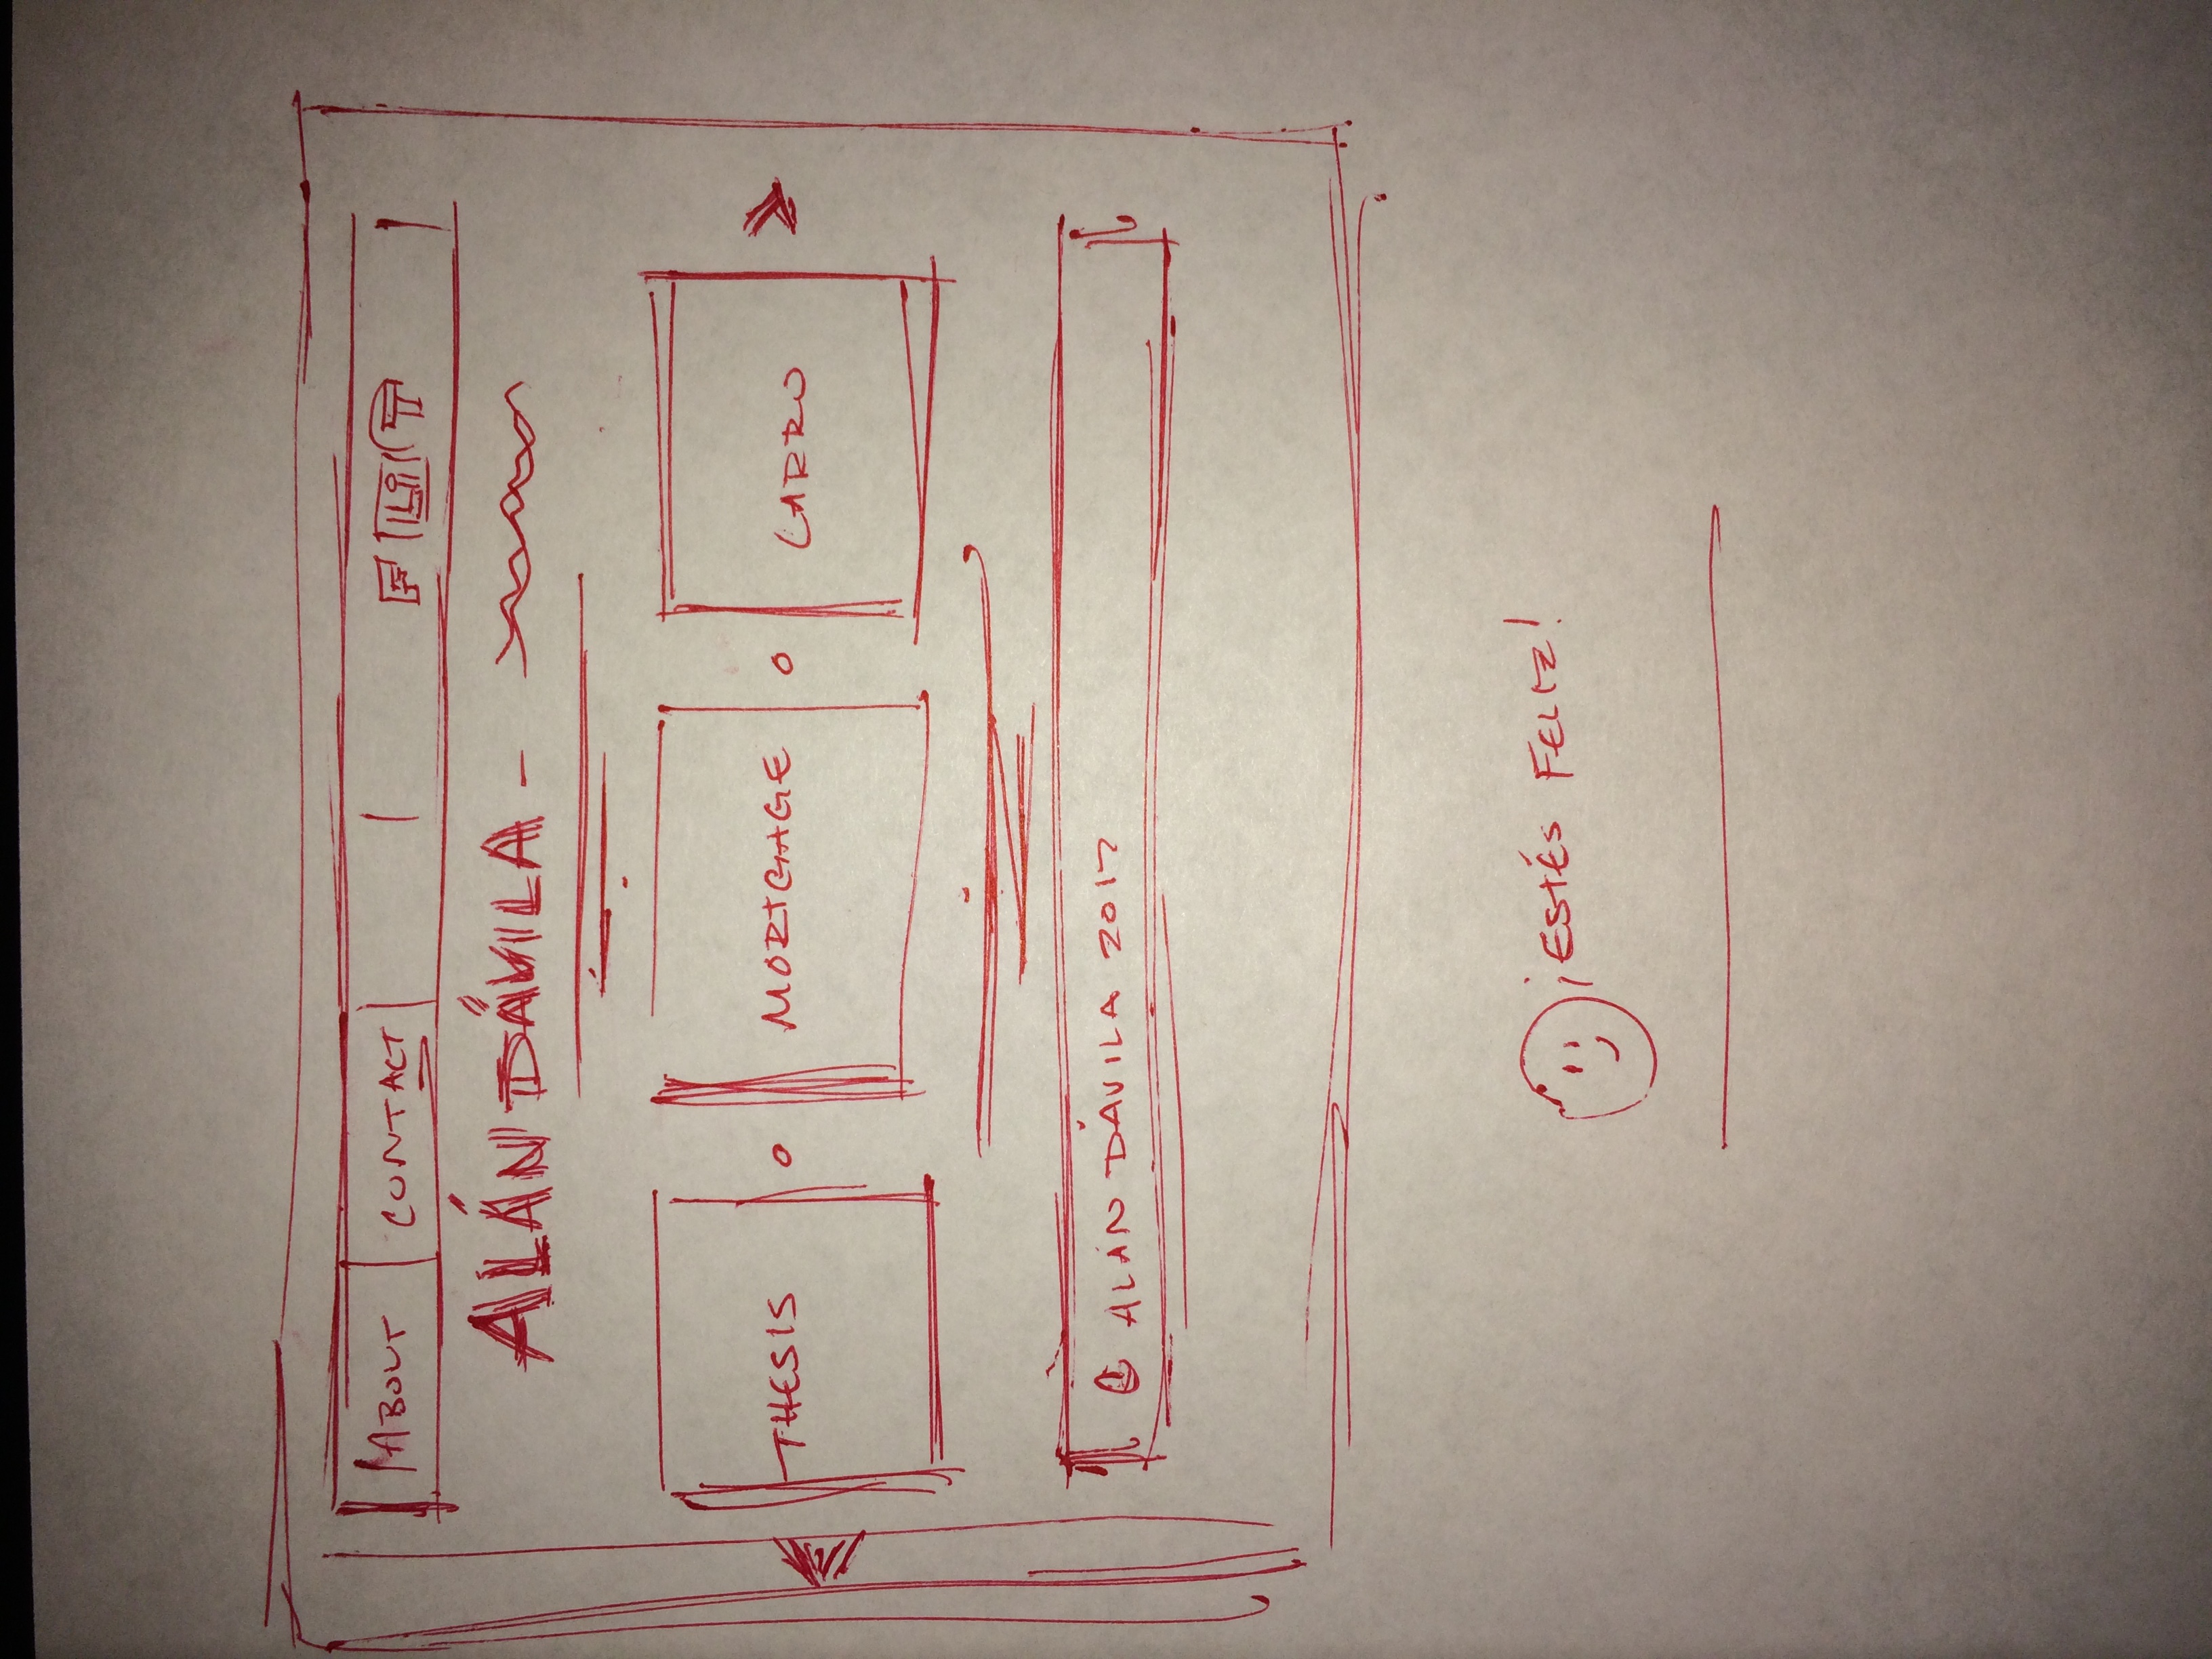 ABOUT CONTACT F Li T
ALÁN DÁVILA -
THESIS MORTGAGE CARRO
© ALÁN DÁVILA 2017
¡ESTÉS FELIZ!